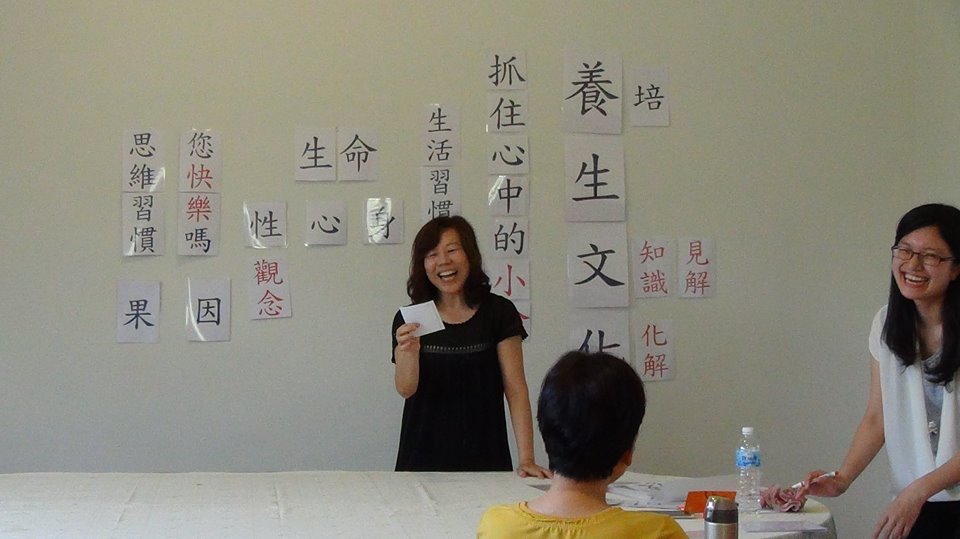 培
養生文化
見解
知識
化解
抓住心中的小
生活習慣
生命
身
心
性
觀念
您快樂嗎
思維習慣
因
果